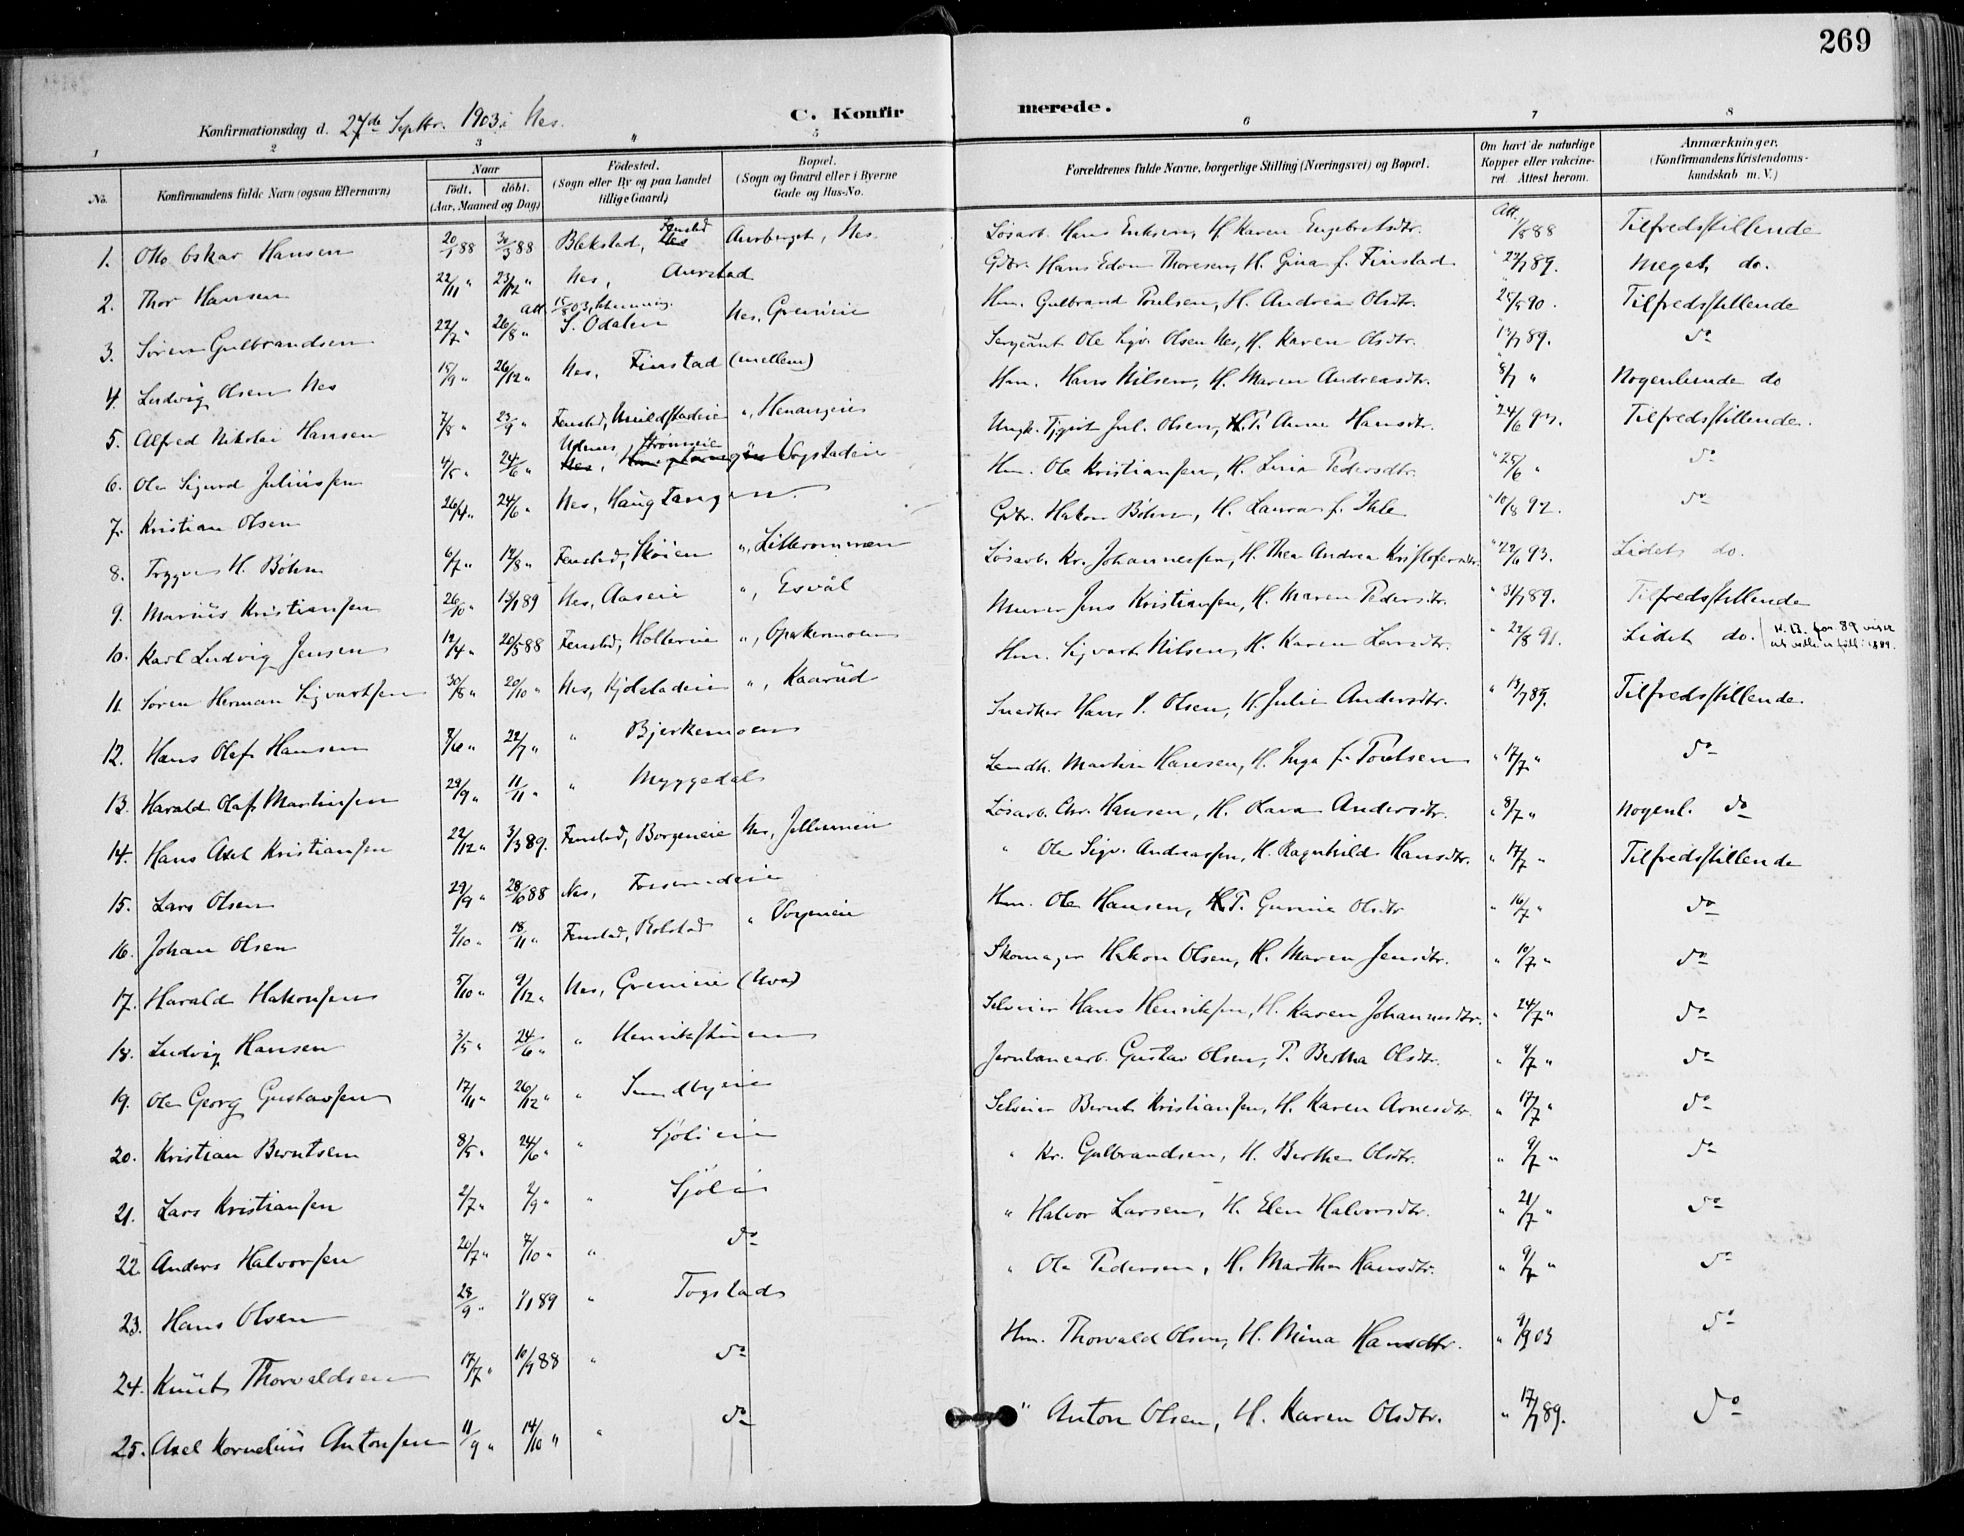 269
Konfirmationsdag d. 27de Septbr. 1903 i Nes.
C. Konfir
merede.
1 2 3 4 5 6 7 8
No.
Konfirmandens fulde Navn (ogsaa Efternavn)
Naar
födt. döbt.
(Aar, Maaned og Dag)
Födested.
(Sogn eller By og paa Landet
tillige Gaard)
Bopæl.
(Sogn og Gaard eller i Byerne
Gade og Hus-No.
Forældrenes fulde Navne, borgerlige Stilling (Næringsvei) og Bopæl.
Om havt de naturlige
Kopper eller vakcine-
ret. Attest herom.
Anmærkninger.
(Konfirmandens Kristendoms-
kundskab m. V.)
1. Otto Oskar Hansen 20/1 88 30/3 88 Blekstad, Fenstad Nes Aurberget, Nes. Løsarb. Hans Eriksen, H. Karen Engebretsdtr. Att. 1/8 88 Tilfredsstillende
2. Thor Hansen 22/11 " 23/12 " Nes, Aurstad Gdbr. Hans Edv. Thoresen, H. Gina f. Finstad " 23/7 89. Meget do.
3. Søren Gulbrandsen 22/7 " 26/8 " Att. 15/8 03 S. Odalen Nes, Greneie Hm. Gulbrand Poulsen, H. Andrea Olsdtr. " 25/5 90. Tilfredsstillende
4. Ludvig Olsen Nes 15/9 " 26/12 " Nes, Finstad (mellem) Sergeant Ole Sigv. Olsen Nes, H. Karen Olsdtr. " 13/7 89. do
5. Alfred Nikolai Hansen 7/8 " 23/9 " Fenstad, Ullershadeie ", Henangeie Hm. Hans Nilsen, H. Maren Andreasdtr. " 8/7 " Nogenlunde do
6. Ole Sigurd Juliussen 4/5 " 24/6 " Udenes, Strømeie Nes, Vogstadeie Ungk. Tjgut Jul. Olsen, P. Anne Hansdtr. " 24/6 93. Tilfredsstillende.
7. Kristian Olsen 26/4 " 24/6 " Nes, Haugtangen. Hm. Ole Kristiansen, H. Lina Pedersdtr. " 25/6 " do
8. Trygve H. Böhn 6/7 " 19/8 " Fenstad, Skøien ", Lillerommen Gdbr. Hakon Böhn, H. Laura f. Ihle " 10/8 92. do
9. Marius Kristiansen 26/10 " 13/1 89 Nes, Aaseie ", Esvål Løsarb. Kr. Johannessen, H. Thea Andrea Kristofersdtr. " 22/6 93. Lidet do.
10. Karl Ludvig Jensen 12/4 " 20/5 88 Fenstad, Holtereie ", Opakermoen Murer Jens Kristiansen, H. Maren Pedersdtr. " 31/7 89. Tilfredsstillende
11. Søren Herman Sigvartsen 30/8 " 20/10 " Nes, Kjølstadeie ", Kaarud Hm. Sigvart Nilsen, H. Karen Larsdtr. " 22/8 91. Lidet do.
12. Hans Olaf Hansen 7/6 " 22/7 " " Bjerkemoen Snedker Hans P. Olsen, H. Julie Andersdtr. " 13/7 89. Tilfredsstillende.
13. Harald Olaf Martinsen 29/9 " 11/11 " " Myggedal Landh. Martin Hansen, H. Inga f. Poulsen " 17/7 " do
14. Hans Axel Kristiansen 22/12 " 3/3 89. Fenstad, Borgeneie Nes, Jellumeie Løsarb. Chr. Hansen, H. Olava Andersdtr. " 8/7 " Nogenl. do
15. Lars Olsen 29/9 " 28/10 88 Nes, Fosserudeie " Ole Sigv. Andreassen, H. Ragnhild Hansdtr. " 17/7 " Tilfredsstillende
16. Johan Olsen 2/10 " 18/11 " Fenstad, Rolstad " Vogneie Hm. Ole Hansen, P. Gurine Olsdtr " 16/7 " do
17. Harald Hakonsen 5/10 " 9/12 " Nes, Greneie (Uva) Skomager Hakon Olsen, H. Maren Jensdtr. " 10/7 " do
18. Ludvig Hansen 3/5 " 24/6 " " Henrikstuen Selveier Hans Henriksen, H. Karen Johannesdtr. " 24/7 " do
19. Ole Georg Gustavsen 17/11 " 26/12 " " Sundbyeie Jernbanearb. Gustav Olsen, P. Bertha Olsdtr. " 9/7 " do
20. Kristian Berntsen 8/5 " 24/6 " " Sjølieie Selveier Bernt Kristiansen, H. Karen Arnesdtr. " 17/7 " do
21. Lars Kristiansen 2/7 " 2/9 " " Sjøli " Kr. Gulbrandsen, H. Berthe Olsdtr. " 9/7 " do
22. Anders Halvorsen 20/7 " 7/10 " " do " Halvor Larsen, H. Elen Halvorsdtr. " 21/7 " do
23. Hans Olsen 28/9 " 1/1 89 " Togstad " Ole Pedersen, H. Marthe Hansdtr. " 9/7 " do
24. Knut Thorvaldsen 17/7 " 10/9 88 " do Hm. Thorvald Olsen, H. Mina Hansdtr. " 9/9 03 do
25. Axel Kornelius Antonsen 11/9 " 14/10 " " do " Anton Olsen, H. Karen Olsdtr. " 17/7 89. do